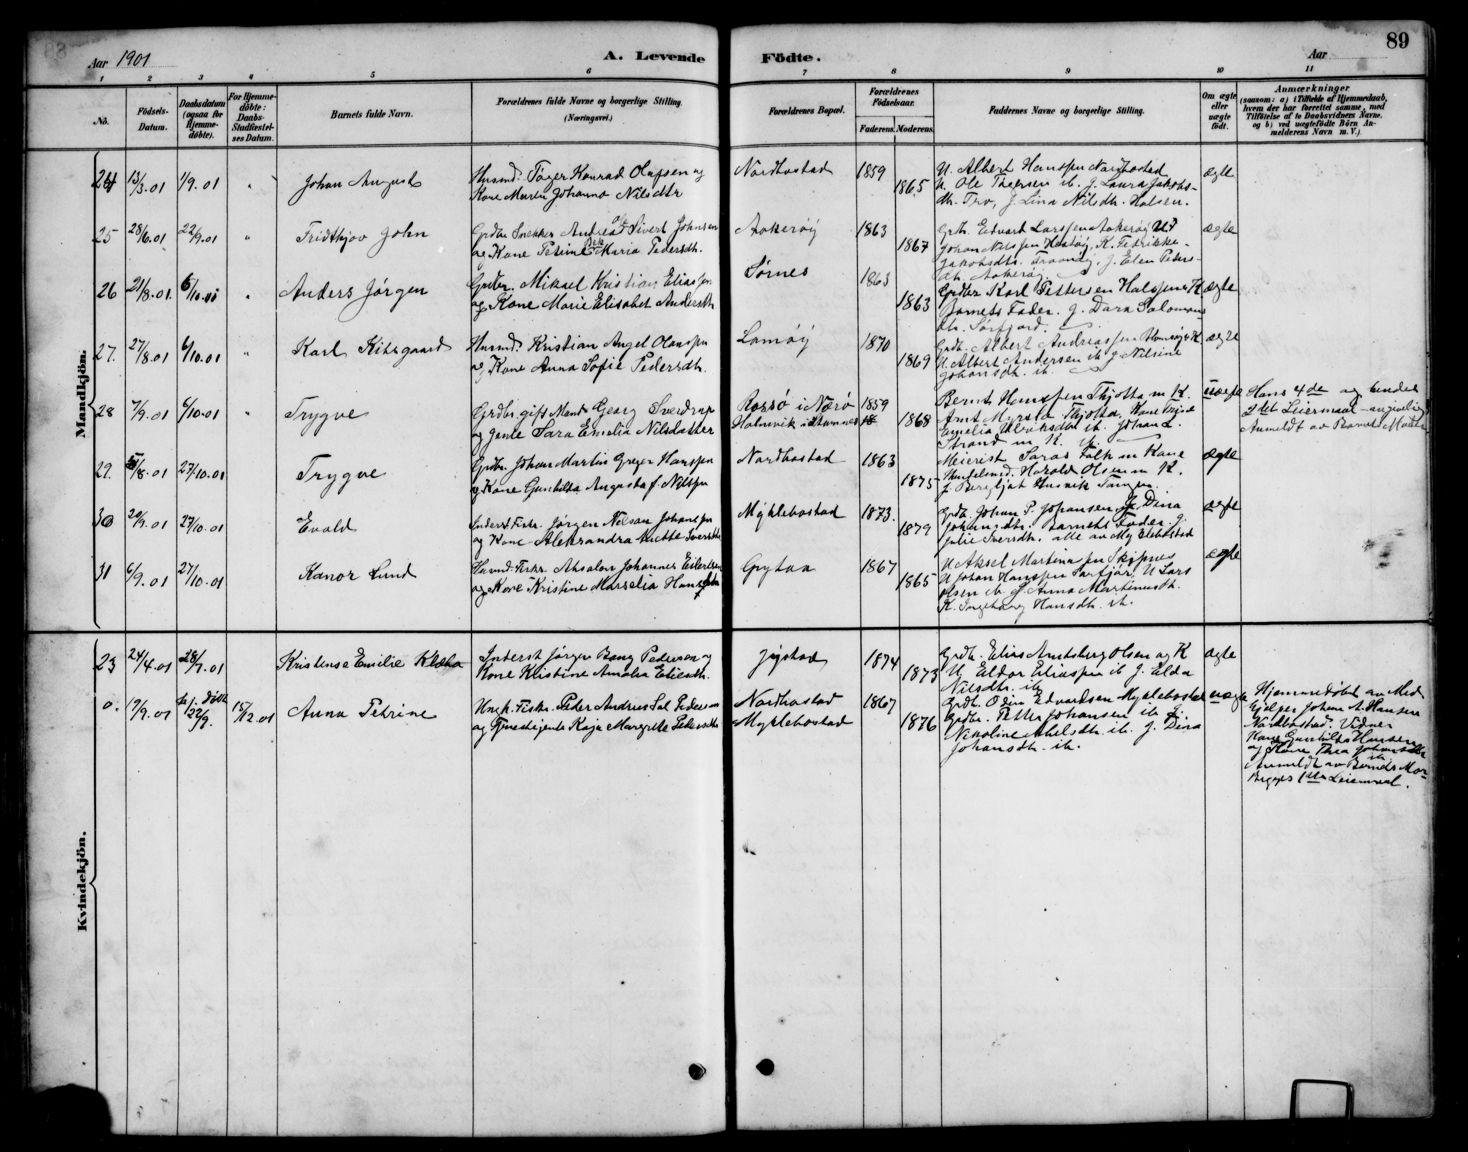 89
Aar 1901
A. Levende Födte.
Aar
1 2 3 4 5 6 7 8 9 10 11
No.
Födsels-Datum.
Daabsdatum (ogsaa for Hjemme-döbte).
For Hjemme-döbte: Daabs-Stadfæstel-ses Datum.
Barnets fulde Navn.
Forældrenes fulde Navne og borgerlige Stilling. (Næringsvei.)
Forældrenes Bopæl.
Forældrenes Födselsaar.
Faderens. Moderens.
Faddernes Navne og borgerlige Stilling.
Om ægte eller uægte födt.
Anmærkninger
(saasom: a) i Tilfælde af Hjemmedaab,
hvem der har forrettet samme, med
Tilföielse af to Daabsvidners Navne,
og b) ved uægtefödte Börn An-
melderens Navn m. V.)
Mandkjön.
24 13/3.01 1/9.01 " Johan August
Husmd. Tøger Konrad Olufsen og
Kone Martin Johanna Nilsdtr
Nordbostad 1859 1865
U. Albert Hanssen Nordbostad
U. Ole Thepsen ib. J. Laura Jakobs-
dtr. Tro, J. Lina Nilsdtr. Halsen.
ægte
25 28/6.01 22/9.01 Fridthjov John
Grdbr. Snekker Andreas Sivert Johnsen
og Kone Petrine Maria Pedersdtr.
Aakerøy 1863 1867
Grbr. Edvart Larssen Aakerøy U
Johan Nilssen Hestøy, K. Fedrikke
Jakobsdtr. J. Elen Peters-
dtr. Aakerøy
ægte
26 21/8.01 6/10.01 " Anders Jørgen
Grdbr. Mikael Kristian Eliassen
og Kone Marie Elisabet Andersdtr
Sørnes 1863 1863
Grdbr Karl Pettersen Halssen K
Barnets Fader. J. Dara Salomons
dtr. Sørfjord.
ægte
27. 27/8.01 6/10.01 " Karl Kirkgaard
Husmd. Kristian Angel Olaussen
og Kone Anna Sofie Pedersdtr.
Lamøy 1870 1869
Grdb. Albert Andreassen K
U. Albert Andersen ib. J. Nilsine
Johansdtr. ib.
ægte
28 7/9.01 6/10.01 " Trygve
Grdbr. gift Mand Georg Sverdrup
og Jente Sara Emelia Nilsdatter
Rossø i Nærø
1859 1868
Bernt Hanssen Thjotta m K.
Arnt Thjotta, Kone
Emelia Ulriksdtr ib. Johan L.
Strand m K.
uægte
Hans 4de og hendes
2det Leiermaal angivelig
Anmeldt av Barnets Moder
29. 8.01 27/10.01 Trygve
Grdbr. Johan Martin Greger Hanssen
og Kone Gunhilda Augusta f. Nilssen
Nordbostad 1863 1875
Meierist Falk m Kone
Handelsmd. Harald Olsen m K.
f. Bergljot Husvik
ægte
30 20/9.01 27/10.01 Evald
Inderst Fiskr. Jørgen Nelson Johansen
og Kone Aleksandra Mette Sversdtr
Myklebostad 1873. 1879
Grdb. Johan P. Johansen J. Dina
Johansdtr. Barnets Fader J.
Julie Sversdtr. alle av Myklebostad
ægte
31 6/9.01 27/10.01 Kanor Lund
Husmd. Fiskr. Absalon Johannes Eilertsen
og Kone Kristine Marselia Hansdtr
Grytaa 1867 1865
U. Aksel Martinussen Skipnes
U. Johan Hanssen Sørfjor, U. Lars
Olsen ib. J. Anna Martinusdtr.
K. Ingeborg Hansdtr. ib.
ægte
Kvindekjön.
23 24/4.01 28/7.01 Kristense Emilie Kleha
Inderst Jørgen Bang Pedersen og
Kone Kristine Amalia Eliesdtr.
Jystad 1874 1873
Grdb. Elias Arntsberg Olsen og K
U. Eldor Eliassen ib J. Elda
Nilsdtr. ib
ægte
0. 19/9.01 Hj. Døbt 22/9. 15/12.01 Anna Petrine
Ungk. Fiskr. Peder Andreas Sal Pedersen
og Tjenestejente Kaja Margrette Pedersdtr
Nordbostad
Myklebostad
1867 1876
Grdb. Odin Edvardsen Myklebostad
Grdbr. Petter Johansen ib. J.
Nikoline Abelsdtr. ib. J. Dina
Johansdtr. ib.
uægte
Hjemmedøbt av Med
hjelper Johan A. Hansen
Nordbostad. Vidner
Kone Gunhilda Hansen
og Kone Thea Johansdtr
ib
Anmeldt av Barnets Mor
Begges 1ste Leiermaal.